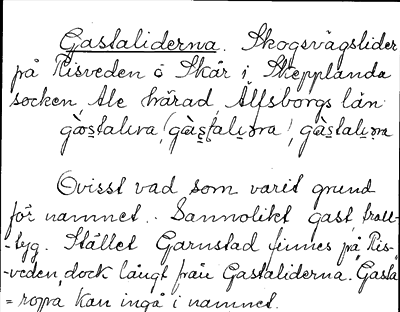 Gastaliderna. Skogsvägslider
på Risveden ö Skår i Skepplanda
socken, Ale härad, Älfsborgs län
gàstalıra (gàstalıɷra), gàstalıɷra
Ovisst vad som varit grund
för namnet. Sannolikt gast troll-
-tyg. Stället Garnstad finnes på Ris-
-veden, dock långt från Gastaliderna. "Gasta"
= ropa kan ingå i namnet.